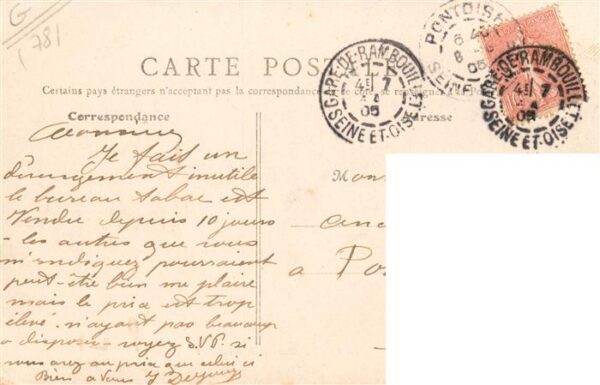 G
(78)
CARTE POSTALE
Certains pays étrangers n'acceptent pas la correspondance au
Correspondance
Adresse
PONTOISE
SEINE
05
GARE-DE-RAMBOUILLET
4E 7
05
SEINE ET OISE
GARE-DE-RAMBOUILLET
4E 7
05
SEINE ET OISE
Monsieur
Je fais un
dérangement inutile
le bureau tabac est
Vendu depuis 10 jours
- les autres que vous
m'indiquez pourraient
peut-être bien me plaire
mais le prix est trop
élevé. n'ayant pas beaucoup
a disposer - voyez S.V.P. si
vous avez au prix que celui ci
Bien a Vous
Mon
a Po